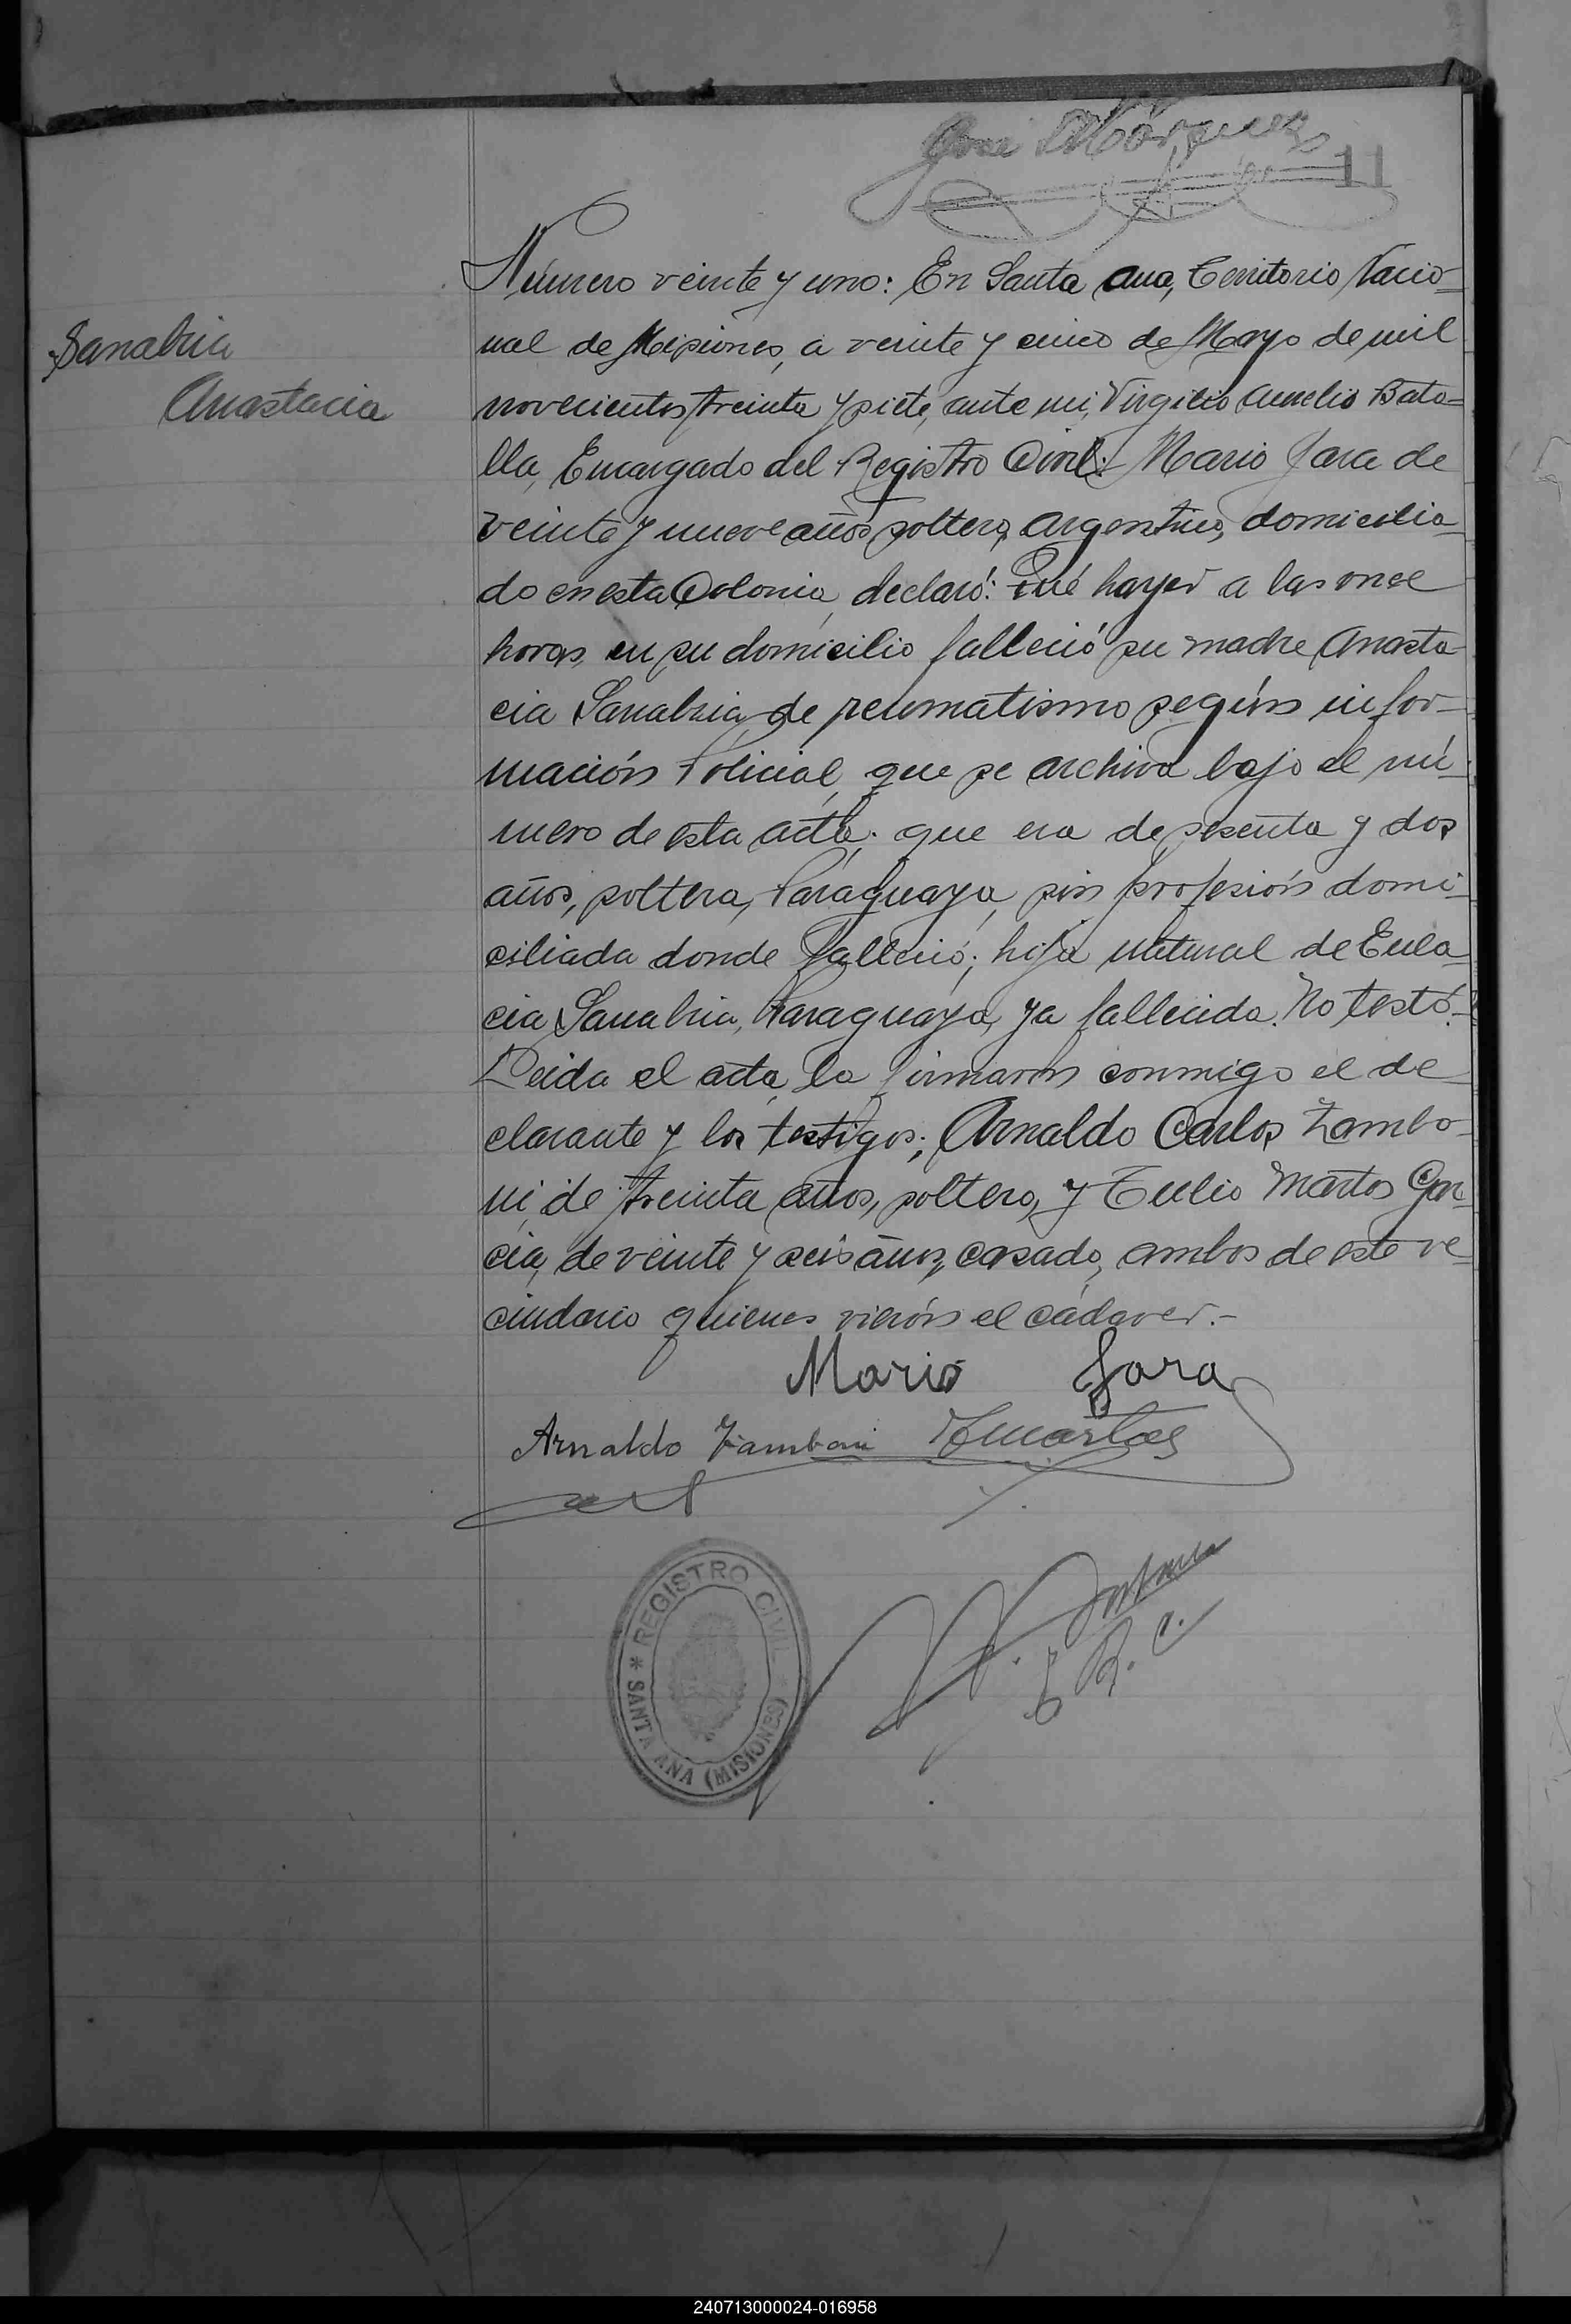 José Márquez
11
Sanabria
Anastacia
Número veinte y uno: En Santa Ana, Territorio Nacio-
nal de Misiones, a veinte y cinco de Mayo de mil
novecientos treinta y siete, ante mi, Virgilio Aurelio Bato-
lla, Encargado del Registro Civil: Mario Jara de
veinte y nueve años, soltero, argentino, domicilia-
do en esta Colonia, declaró: Qué hayer a las once
horas, en su domicilio falleció su madre Anasta-
cia Sanabria, de reumatismo según infor-
mación Policial, que se archiva bajo el nú-
mero de esta acta; que era de sesenta y dos
años, soltera, Paraguaya, sin profesión domi-
ciliada donde falleció; hija natural de Eula-
cia Sanabria, Paraguaya, ya fallecida. No testó.-
Leida el acta, la firmarón conmigo el de-
clarante y los testigos; Arnaldo Carlos Zambo-
ni, de treinta años, soltero, y Tulio Martos Gar-
cia, de veinte y seis años, casado, ambos de este ve-
cindario quienes vierón el cádaver.-
Mario Jara
Arnaldo Zamboni TMartos
E R. C.
REGISTRO CIVIL
* SANTA ANA (MISIONES)
240713000024-016958